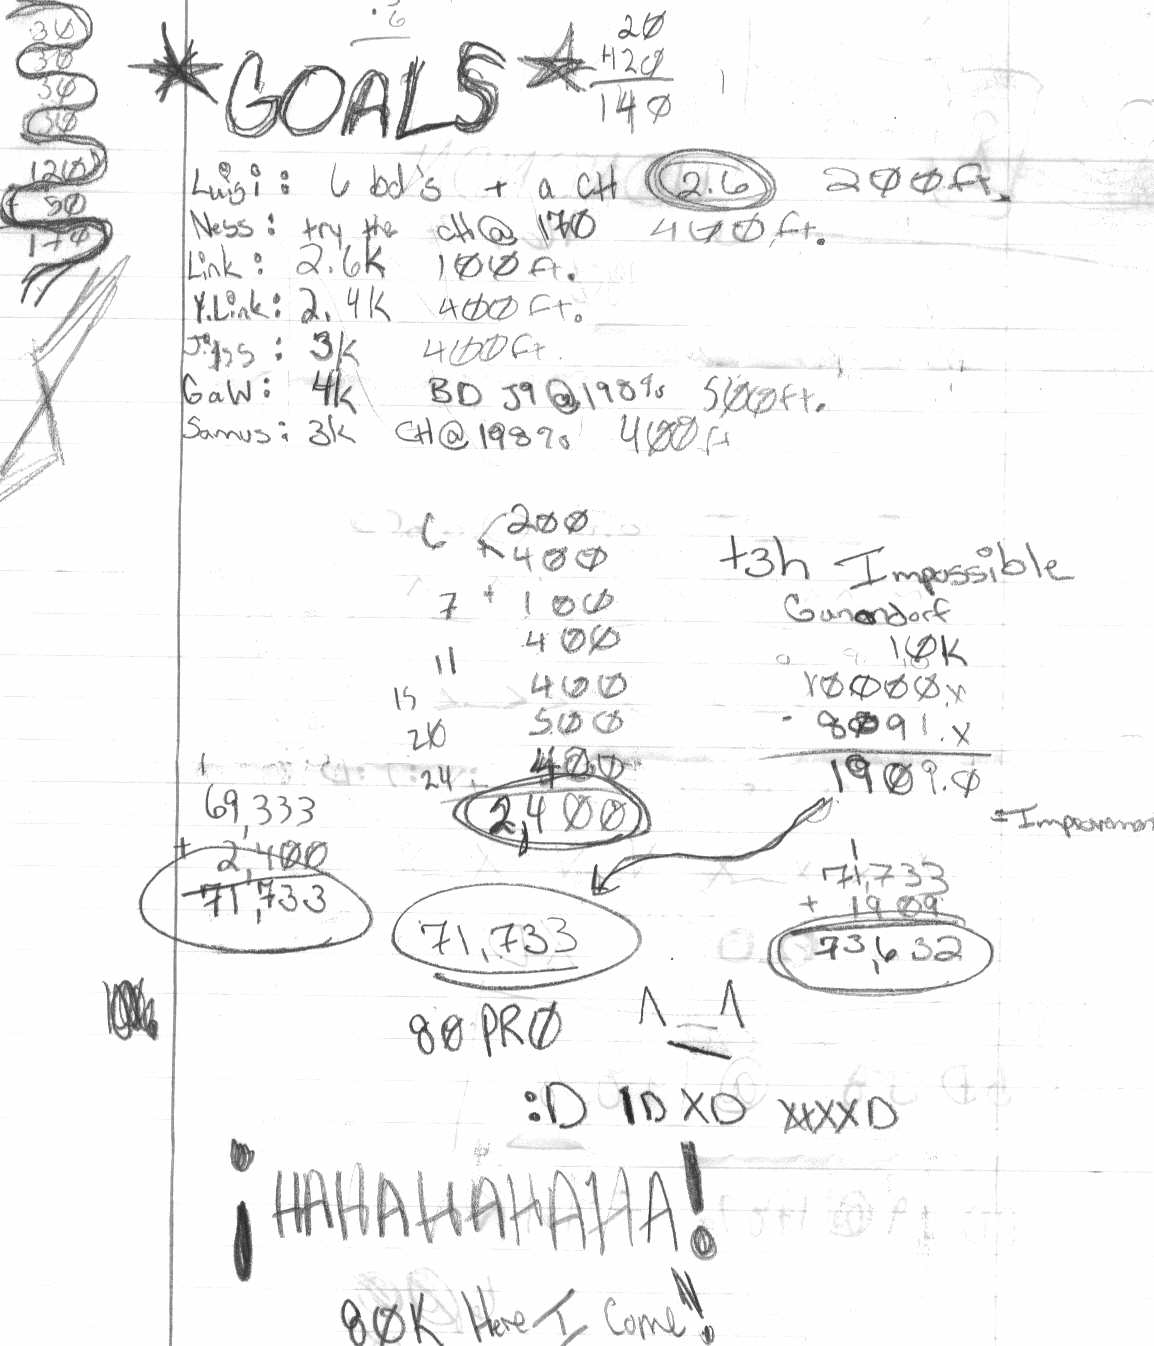 30
30
30
30
120
+ 50
170
.6
GOALS
20
+120
140
Luigi: 6 bd's + a CH 2.6 200ft.
Ness: try the CH@ 170 400ft.
Link: 2.6k 100ft.
Y.Link: 2.4k 400ft.
Jigs: 3k 400ft.
GaW: 4k BD J9@198% 500ft.
Samus: 3k CH@198% 400ft
6 200
+ 400
7 + 100
400
11
15 400
20 500
24 400
2,400
t3h Impossible
Ganondorf
10K
10000.x
- 8091.x
1909.0
=Improvemen
1
69,333
+ 2,400
71,733
71,733
1
71,733
+ 1909
73,632
80 PRO
^_^
:D ID XD XXXXD
¡HAHAHAHAHAHA!
80K Here I Come!!